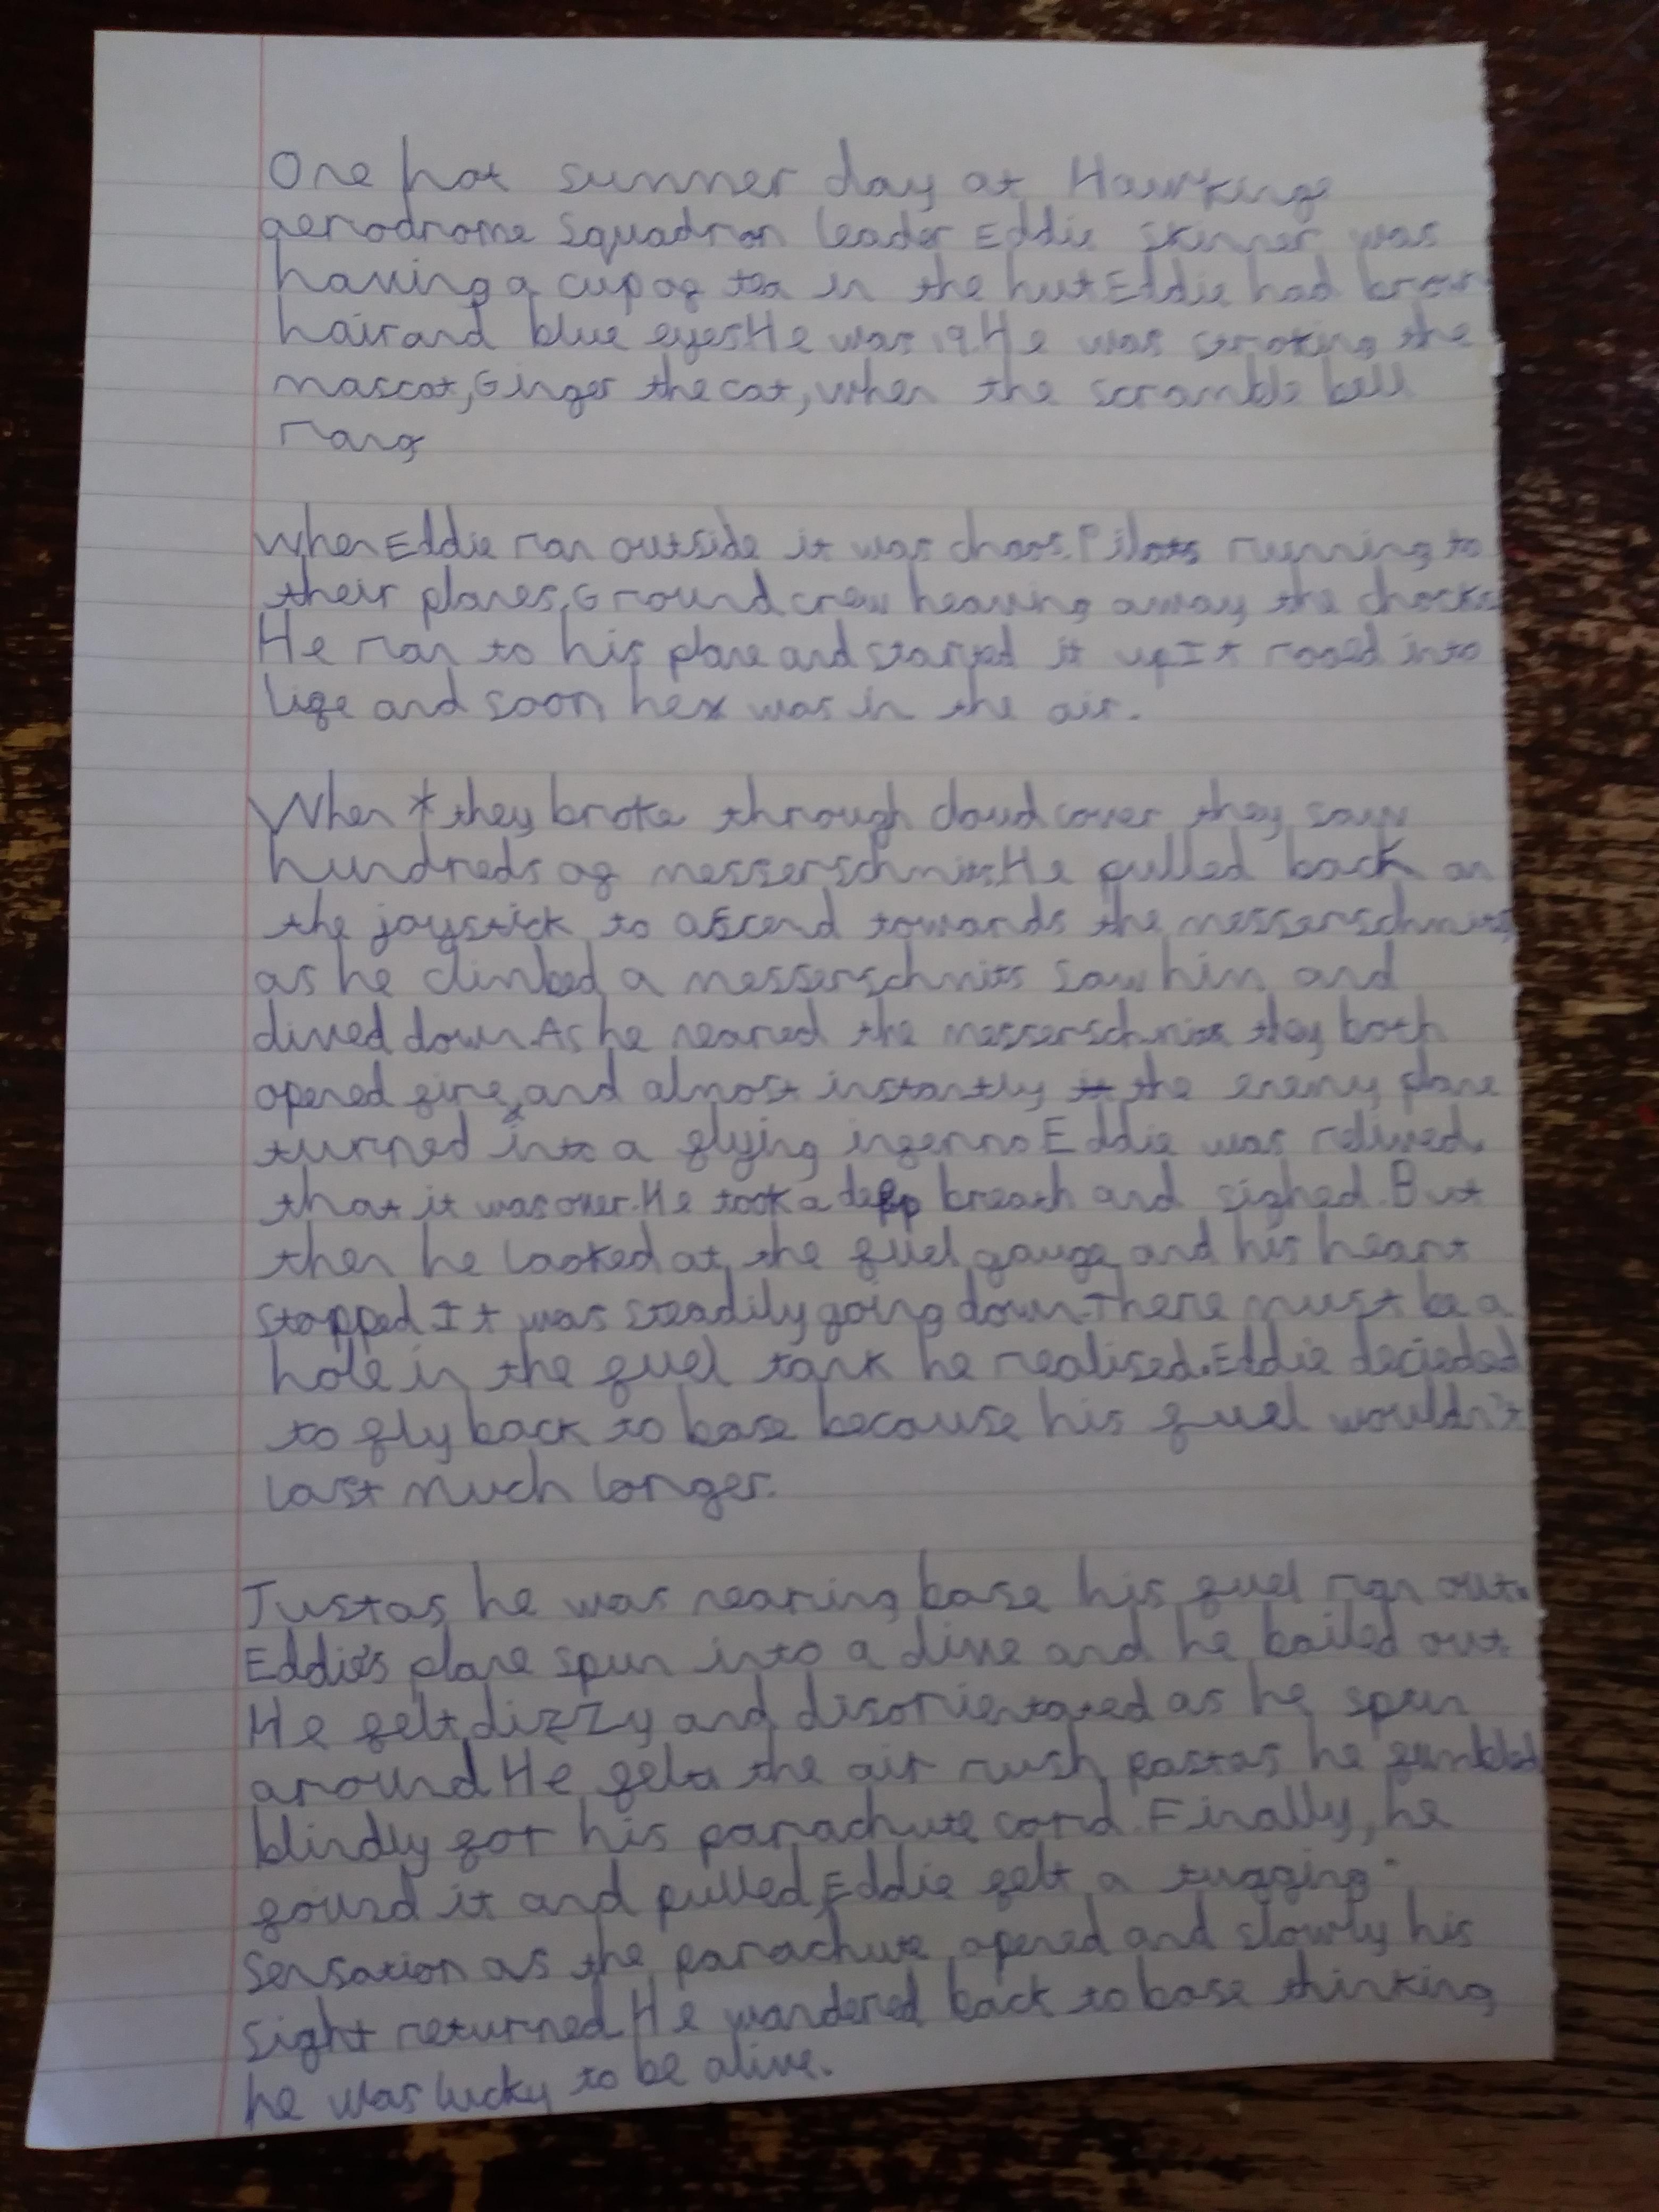 One hot summer day at Hawkinge
aerodrome Squadron leader Eddie Skinner was
having a cup of tea in the hut Eddie had brown
hair and blue eyes. He was 19. He was stroking the
mascot, Ginger the cat, when the scramble bell
rang
When Eddie ran outside it was chaos. Pilots running to
their planes, Ground crew heaving away the chocks
He ran to his plane and started it up It roared into
life and soon he was in the air.
When they broke through cloud cover they saw
hundreds of messerschmits. He pulled back on
the joystick to ascend towards the messerschmits,
as he climbed a messerschmits saw him and
dived down. As he neared the messerschmits they both
opened fire, and almost instantly the enemy plane
turned into a flying inferno Eddie was relived
that it was over. He took a deep breath and sighed. But
then he looked at the fuel gauge and his heart
stopped It was steadily going down. There must be a
hole in the fuel tank he realised. Eddie decieded
to fly back to base because his fuel wouldn't
last much longer.
Just as he was nearing base his fuel ran out.
Eddie's plane spun into a dive and he bailed out.
He felt dizzy and disorientated as he spun
around He felt the air rush past as he fumbled
blindly for his parachute cord. Finally, he
found it and pulled, Eddie felt a tugging
sensation as the parachute opened and slowly his
sight returned. He wandered back to base thinking
he was lucky to be alive.